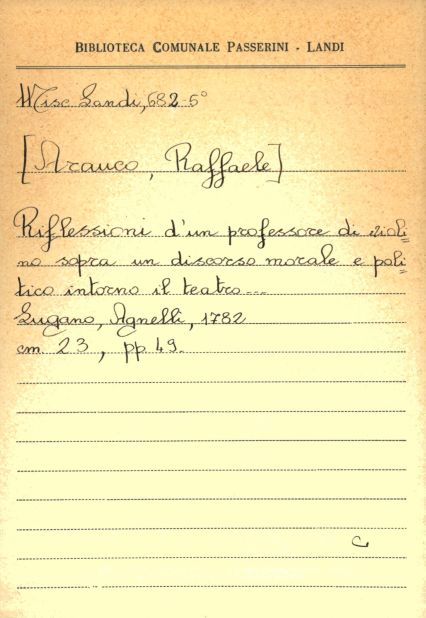 BIBLIOTECA COMUNALE PASSERINI - LANDI
Misc. Landi, 682-5°
[Arauco, Raffaele]
Riflessioni d'un professore di violi=
no sopra un discorso morale e poli=
tico intorno il teatro...
Lugano, Agnelli, 1782
cm 23, pp 49.
C